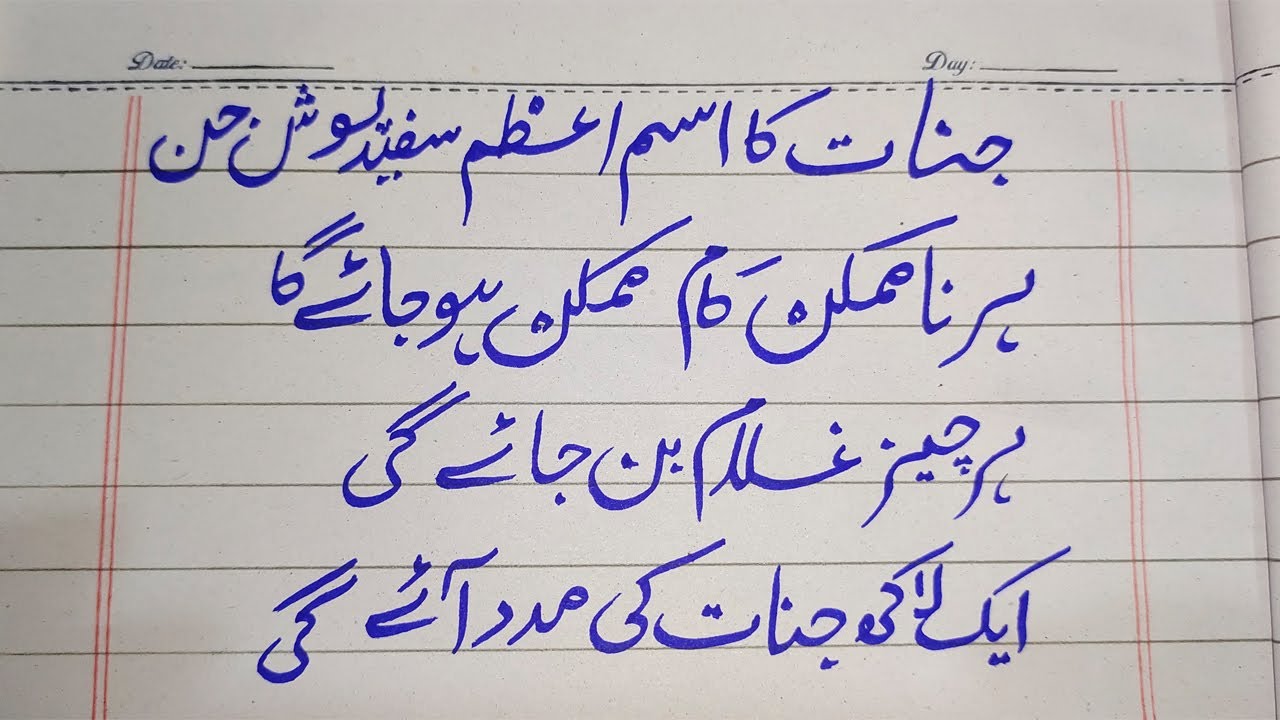 Date: Day:
جنات کا اسم اعظم سفید پوش جن
ہر ناممکن کام ممکن ہو جائے گا
ہر چیز غلام بن جائے گی
ایک لاکھ جنات کی مدد آئے گی